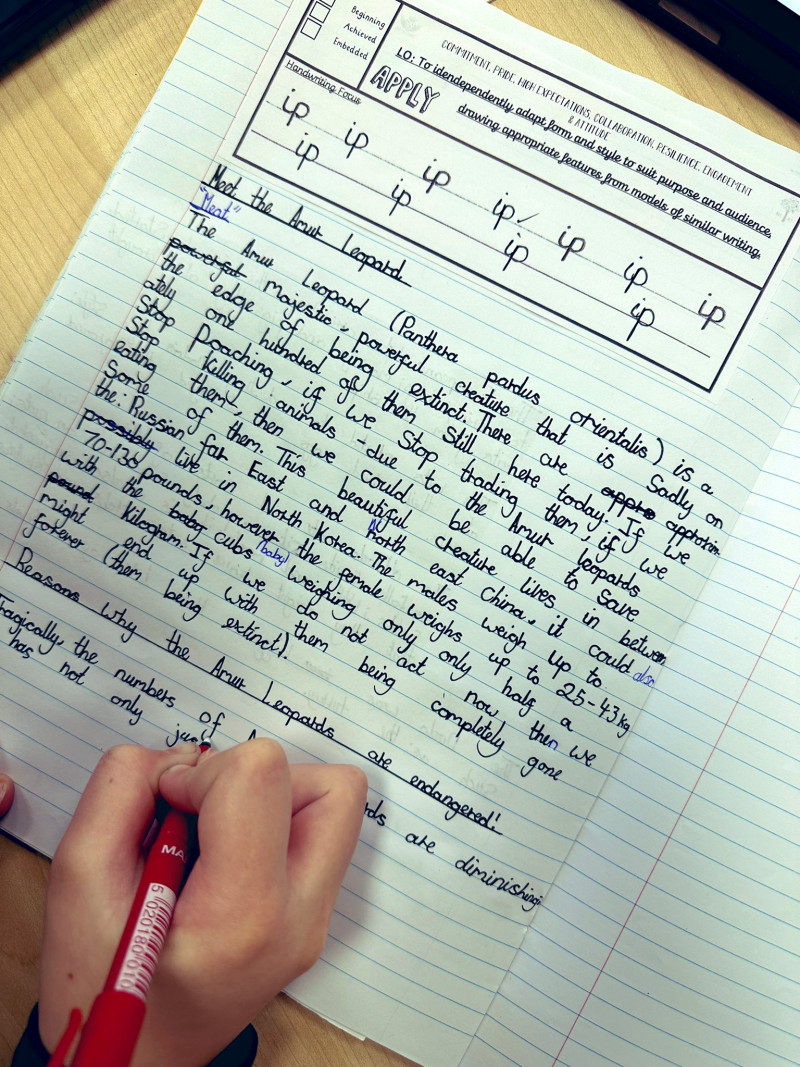 Beginning
Achieved
Embedded
COMMITMENT, PRIDE, HIGH EXPECTATIONS, COLLABORATION, RESILIENCE, ENGAGEMENT
& ATTITUDE
LO: To idendependently adapt form and style to suit purpose and audience,
drawing appropriate features from models of similar writing.
APPLY
Handwriting Focus
ip ip ip ip ip ip ip
ip ip ip ip
Meet the Amur Leopard
"Meat"
The Amur Leopard (Panthera pardus orientalis) is a
powerful majestic, powerful creature that is Sadly on
the edge of being extinct. There are appro approxim-
ately one hundred of them Still here today. If we
Stop Poaching, if we Stop trading them, if we
Stop killing animals - due to the Amur leopards
eating them, then we could be able to Save
Some of them. This beautiful creature lives in between
the: Russian far East and North east China, it could also
possibly live in North Korea. The males weigh up to
70-130 pounds, however the female weighs up to 25-43kg
with the cubs (baby) weighing only only half a
pound kilogram. If we do not act now then we
might end up with them being completely gone
forever (them being extinct).
Reasons why the Amur Leopards are endangered!
Tragically, the numbers of are diminishing;
has not only
MA
5 020180 010